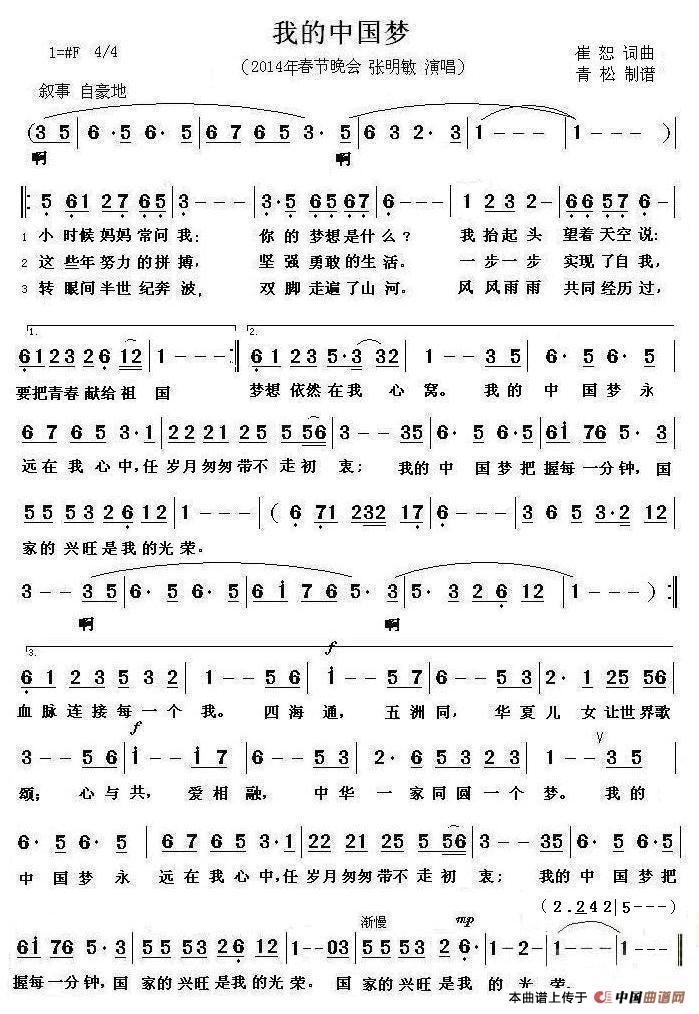 我的中国梦
1=#F 4/4
(2014年春节晚会 张明敏 演唱)
崔 恕 词曲
青 松 制谱
叙事 自豪地
(3 5 | 6· 5 6· 5 | 6 7 6 5 3· 5 | 6 3 2· 3 | 1 - - - | 1 - - - )
啊 啊
5 6 1 2 7 6 5 | 3 - - - | 3· 5 6 5 6 7 6 7 | 6 - - - | 1 2 3 2 - | 6 6 5 7 6 - |
1 小 时候 妈妈 常问 我: 你的 梦想是什么? 我 抬起 头 望着天空 说:
2 这 些年 努力 的拼 搏, 坚强 勇敢 的生活。 一步一步 实现了自我,
3 转 眼间 半世 纪奔 波, 双脚 走遍 了山 河。 风风雨雨 共同经历过,
1. 2.
6 1 2 3 2 6 12 | 1 - - - :| 6 1 2 3 5·3 32 | 1 - - 3 5 | 6· 5 6· 5 |
要把青春献给祖 国 梦想 依然在我 心 窝。 我的 中 国梦永
6 7 6 5 3·1 | 22 21 25 5 56 | 3 - - 35 | 6· 5 6· 5 | 6i 76 5· 3 |
远在我心中,任 岁月匆匆带不 走初 衷; 我的中 国梦把 握每一分钟,国
5 5 5 3 2 6 2·1 | 1 - - - | ( 6 71 232 17 | 6 - - - | 3 6 5 2·3 12 |
家的兴旺是我的光荣。
3 - - 3 5 | 6· 5 6· 5 | 6 i 7 6 5· 3 | 5· 3 2 6 12 | 1 - - - ) :|
啊 啊
3. f
6 1 2 3 5 3 2 | 1 - - 5 6 | i - - 5 7 | 6 - - 5 3 | 2· 6 1 25 56 |
血脉连接每一个 我。 四海 通, 五洲 同, 华 夏儿 女让世界歌
f V
3 - - 5 6 | i - - i 7 | 6 - - 5 3 | 2· 6 5 3 5 2 | 1 - - 3 5 |
颂; 心与 共, 爱相 融, 中华 一 家同圆一个 梦。 我的
6· 5 6· 5 | 6 7 6 5 3·1 | 22 21 25 5 56 | 3 - - 3 5 | 6· 5 6· 5 |
中 国梦永 远在我心中,任 岁月匆匆带不 走初 衷; 我的中 国梦把
渐慢 mp (2.242 | 5 - - - )
6i 76 5· 3 | 5 5 5 3 2 6 12 | 1 - - 03 | 5 5 5 3 2 6· | 1 - 2 - | 1 - - - ‖
握每一分钟,国 家的兴旺是我的光荣。 国 家的兴旺是我 的 光 荣。
本曲谱上传于 中国曲谱网